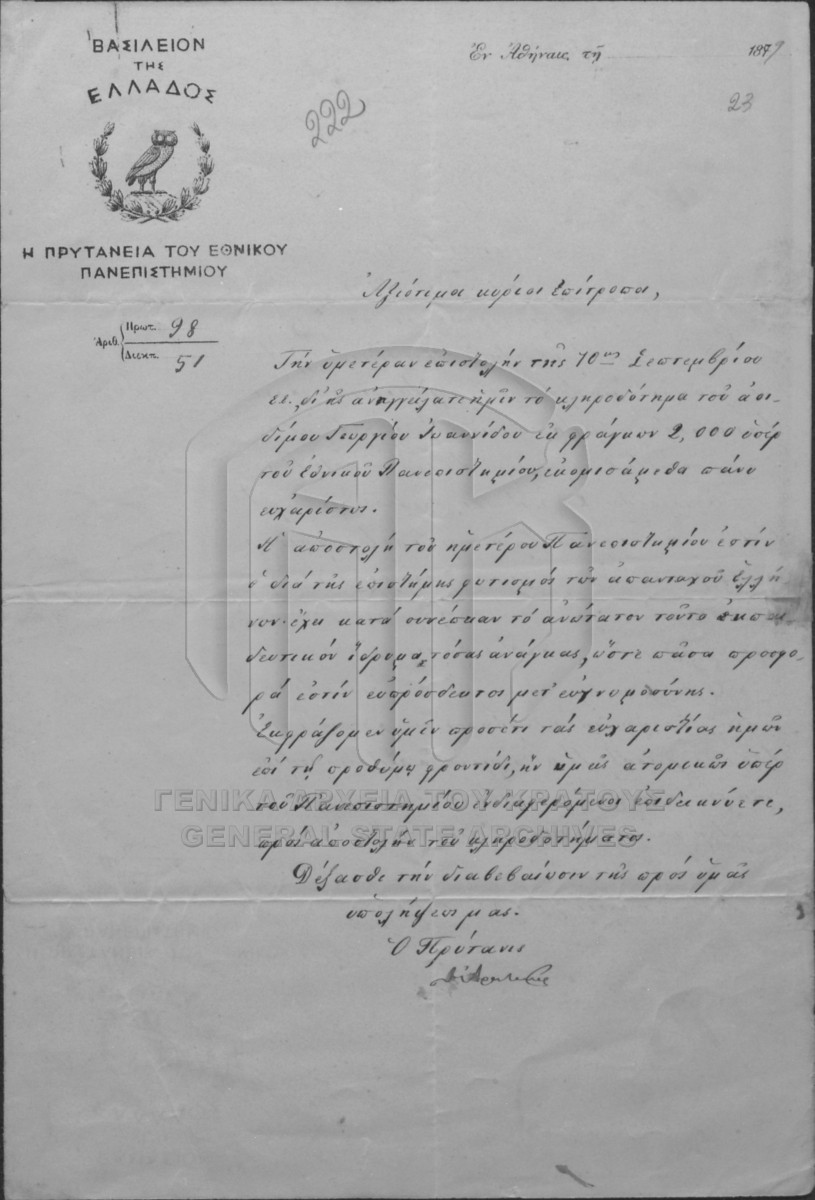 ΒΑΣΙΛΕΙΟΝ
ΤΗΣ
ΕΛΛΑΔΟΣ
Ἐν Ἀθήναις τῇ 1879
23
222
Η ΠΡΥΤΑΝΕΙΑ ΤΟΥ ΕΘΝΙΚΟΥ
ΠΑΝΕΠΙΣΤΗΜΙΟΥ
Ἀριθ. Πρωτ. 98
Διεκπ. 51
Ἀξιότιμοι κύριοι Ἐπίτροποι,
Τὴν ὑμετέραν ἐπιστολὴν τῆς 10ης Σεπτεμβρίου
ἐ.ἔ. δι' ἧς ἀνηγγείλατε ἡμῖν τὸ κληροδότημα τοῦ ἀοι-
δίμου Γεωργίου Ἰωαννίδου ἐκ φράγκων 2,000 ὑπὲρ
τοῦ Ἐθνικοῦ Πανεπιστημίου, ἐκομισάμεθα πάνυ
εὐχαρίστως.
Ἡ ἀποστολὴ τοῦ ἡμετέρου Πανεπιστημίου ἐστὶν
ὁ διὰ τῆς ἐπιστήμης φωτισμὸς τῶν ἁπανταχοῦ Ἑλλή-
νων· ἔχει κατὰ συνέπειαν τὸ ἀνώτατον τοῦτο ἐκπαι-
δευτικὸν ἵδρυμα τόσας ἀνάγκας, ὥστε πᾶσα προσφο-
ρά ἐστιν εὐπρόσδεκτος μετ' εὐγνωμοσύνης.
Ἐκφράζομεν ὑμῖν προσέτι τὰς εὐχαριστίας ἡμῶν
ἐπὶ τῇ προθύμῳ φροντίδι, ἣν ὑμεῖς ἀτομικῶς ὑπὲρ
τοῦ Πανεπιστημίου ἐνδιαφερόμενοι ἐπιδεικνύετε,
πρὸς ἀποστολὴν τοῦ κληροδοτήματος.
Δέξασθε τὴν διαβεβαίωσιν τῆς πρὸς ὑμᾶς
ὑπολήψεώς μας.
Ὁ Πρύτανις
ΓΕΝΙΚΑ ΑΡΧΕΙΑ ΤΟΥ ΚΡΑΤΟΥΣ
GENERAL STATE ARCHIVES